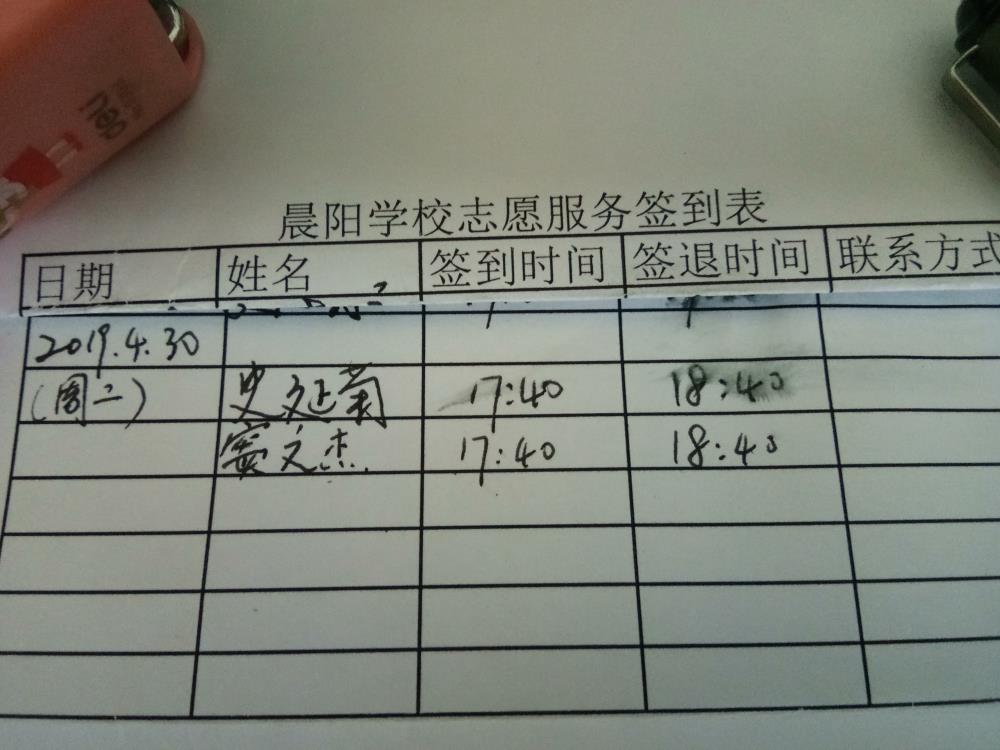 晨阳学校志愿服务签到表
日期 姓名 签到时间 签退时间 联系方式
2019.4.30
(周二) 史延菊 17:40 18:40
窦文杰 17:40 18:40